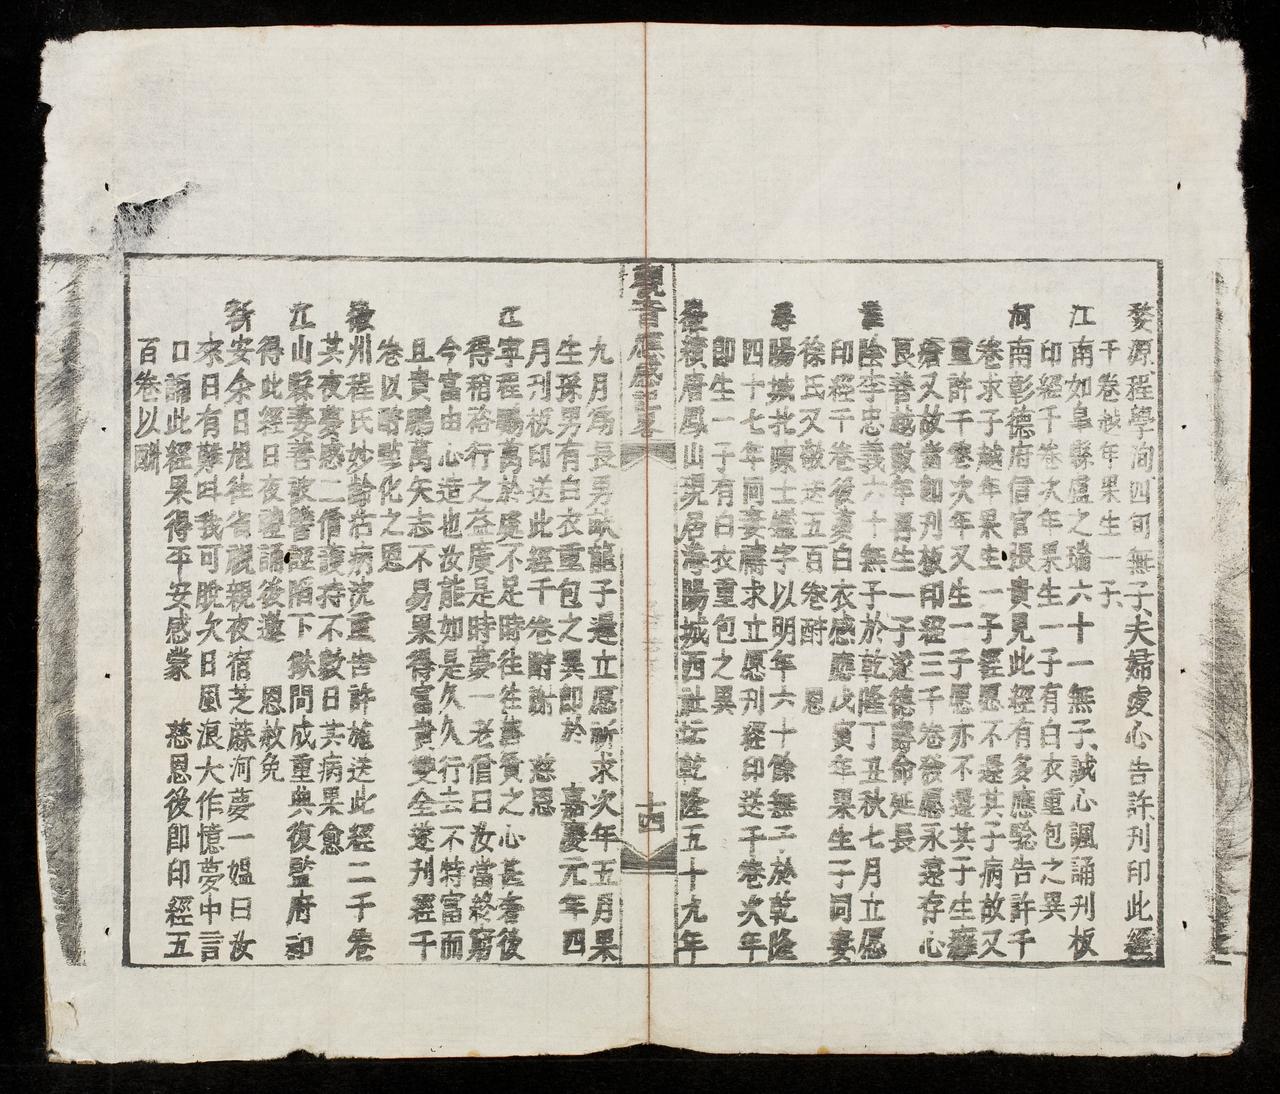 婺源程學洵四旬無子夫婦虔心告許刊印此經
千卷越年果生一子
江南如皐縣盧之璠六十一無子誠心諷誦刊板
印經千卷次年果生一子有白衣重包之異
河南彰德府信官張貴見此經有多應驗告許千
卷求子越年果生一子經愿不還其子病故又
重許千卷次年又生一子愿亦不還其子生癰
瘡又故當即刊板印經三千卷發愿永遠存心
良善越數年喜生一子遂德壽命延長
陰李忠義六十無子於乾隆丁丑秋七月立愿
印經千卷後蒙白衣感應戊寅年果生子同妻
徐氏又敬送五百卷酧 恩
潯陽城北陳士鑑字以明年六十餘無子於乾隆
四十七年同妻禱求立愿刊經印送千卷次年
即生一子有白衣重包之異
績層鳳山現居海陽城西社坛乾隆五十九年
觀音應感 畧
十四
九月爲長男 龍子還立愿祈求次年五月果
生孫男有白衣重包之異即於 嘉慶元年四
月刊板印送此經千卷酧謝 慈恩
江寧程鵬萬於處不足時往往善賢之心甚奢後
得稍裕行之益廣是時夢一老僧曰汝當終窮
今富由心造也汝能如是久久行去不特富而
且貴鵬萬矢志不易果得富貴雙全遂刊經千
卷以酧 化之恩
徽州程氏妙齡沾病沉重告許施送此經二千卷
其夜夢感二僧護持不數日其病果愈
江山縣姜善被讐誣陷下獄問成重典復監府 
得此經日夜禮誦後邀 恩赦免
新安余日旭往省視親夜宿芝蔴河夢一媼曰汝
來日有難呌我可脫次日風浪大作憶夢中言
口誦此經果得平安感蒙 慈恩後即印經五
百卷以酧